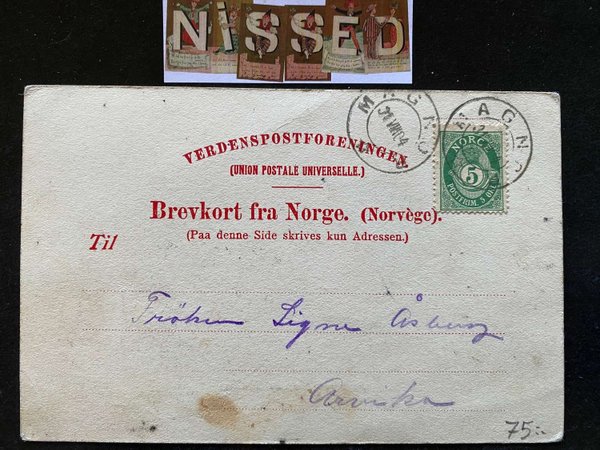 NISSED
VERDENSPOSTFORENINGEN
(UNION POSTALE UNIVERSELLE.)
Brevkort fra Norge. (Norvège).
(Paa denne Side skrives kun Adressen.)
Til
MAGNOR
31 VII 04
MAGNOR
NORGE
5
POSTFRIM. 5 ØRE
Fröken Signe Åsberg
Arvika
75:-